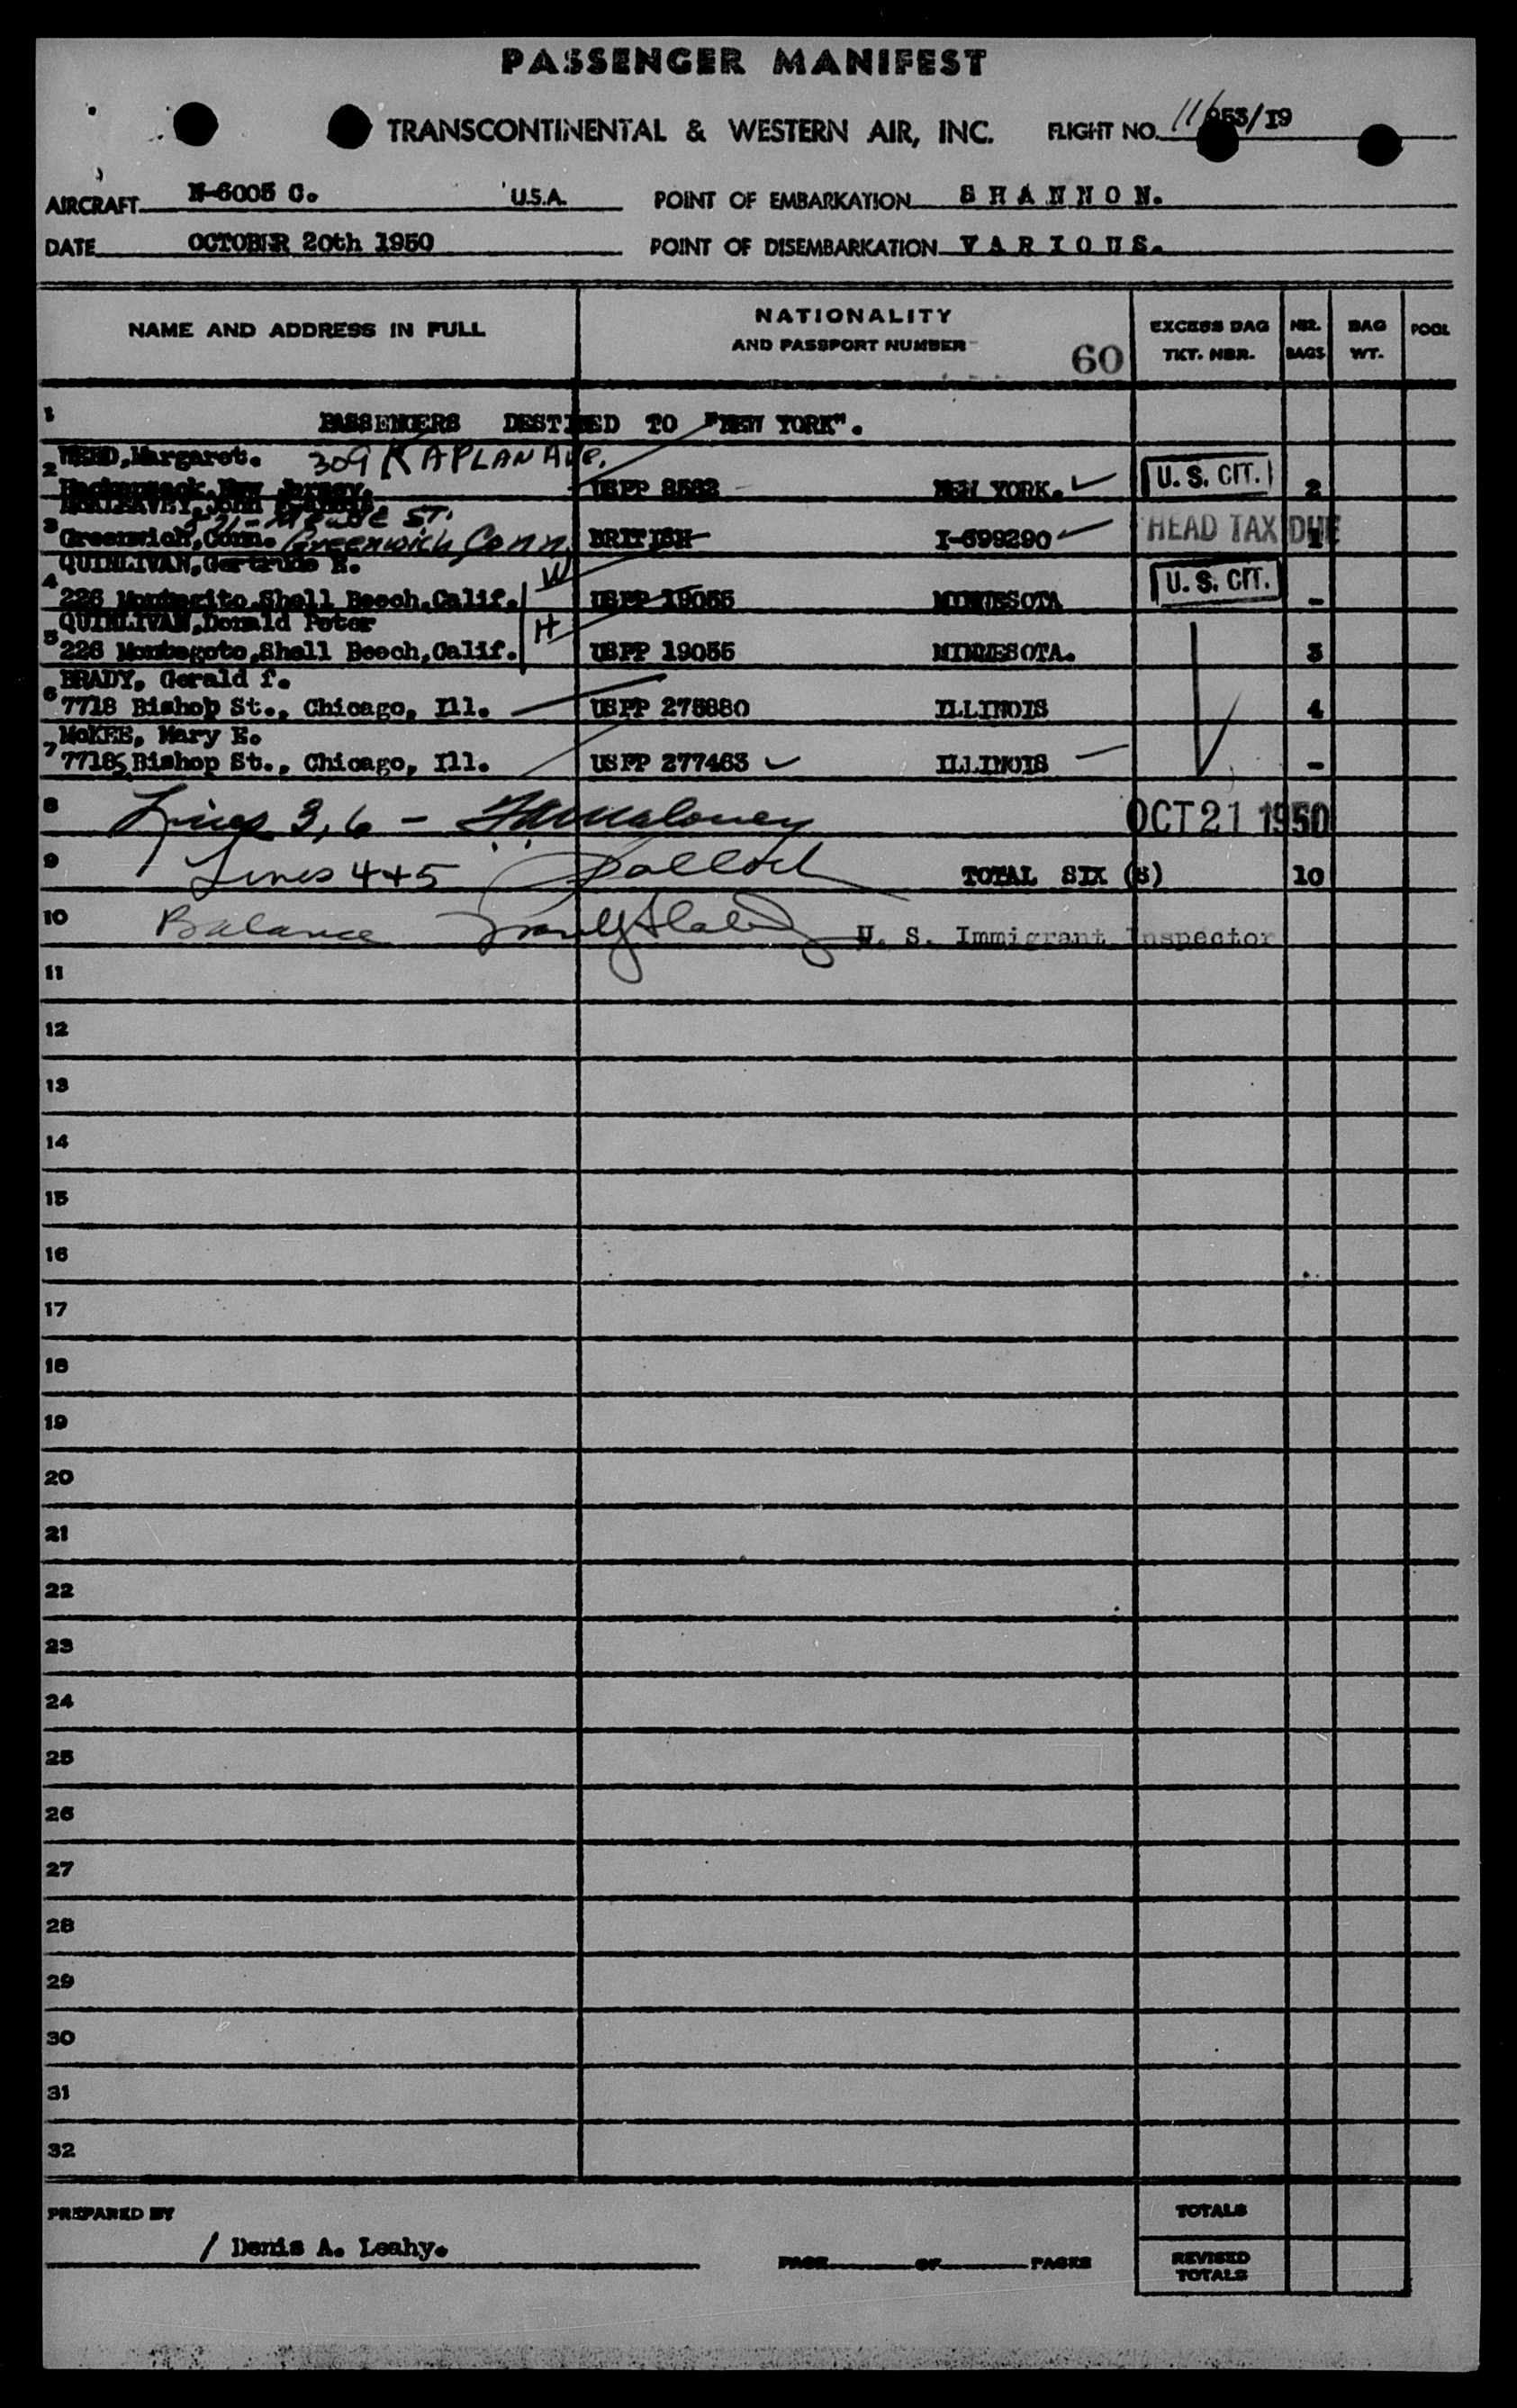 PASSENGER MANIFEST
TRANSCONTINENTAL & WESTERN AIR, INC. FLIGHT NO. 11/953/19
AIRCRAFT N-6005 C. U.S.A. POINT OF EMBARKATION S H A N N O N.
DATE OCTOBER 20th 1950 POINT OF DISEMBARKATION V A R I O U S.
NAME AND ADDRESS IN FULL NATIONALITY AND PASSPORT NUMBER 60 EXCESS BAG TKT. NBR. NBR. BAGS BAG WT. POOL
1 PASSENGERS DESTINED TO "NEW YORK".
2 Margaret. 309 KAPLAN AVE.
Hackensack, New Jersey. USPP 8562 NEW YORK. U. S. CIT. 2
JOHN
3 ST.
Greenwich, Conn. Greenwich, Conn. BRITISH I-699290 HEAD TAX DUE 1
4 QUINLIVAN, Gertrude E. W
226 Montegito, Shell Beech, Calif. USPP 19055 MINNESOTA U. S. CIT. -
5 QUINLIVAN, Donald Peter H
226 Montegoto, Shell Beech, Calif. USPP 19055 MINNESOTA. 3
6 BRADY, Gerald f.
7718 Bishop St., Chicago, Ill. USPP 275880 ILLINOIS 4
7 McKEE, Mary E.
7718 Bishop St., Chicago, Ill. USPP 277463 ILLINOIS -
8 Lines 3, 6 - Maloney OCT 21 1950
9 Lines 4+5 " TOTAL SIX (6) 10
10 Balance U. S. Immigrant Inspector
11
12
13
14
15
16
17
18
19
20
21
22
23
24
25
26
27
28
29
30
31
32
PREPARED BY TOTALS
/ Denis A. Leahy. PAGE OF PAGES REVISED TOTALS